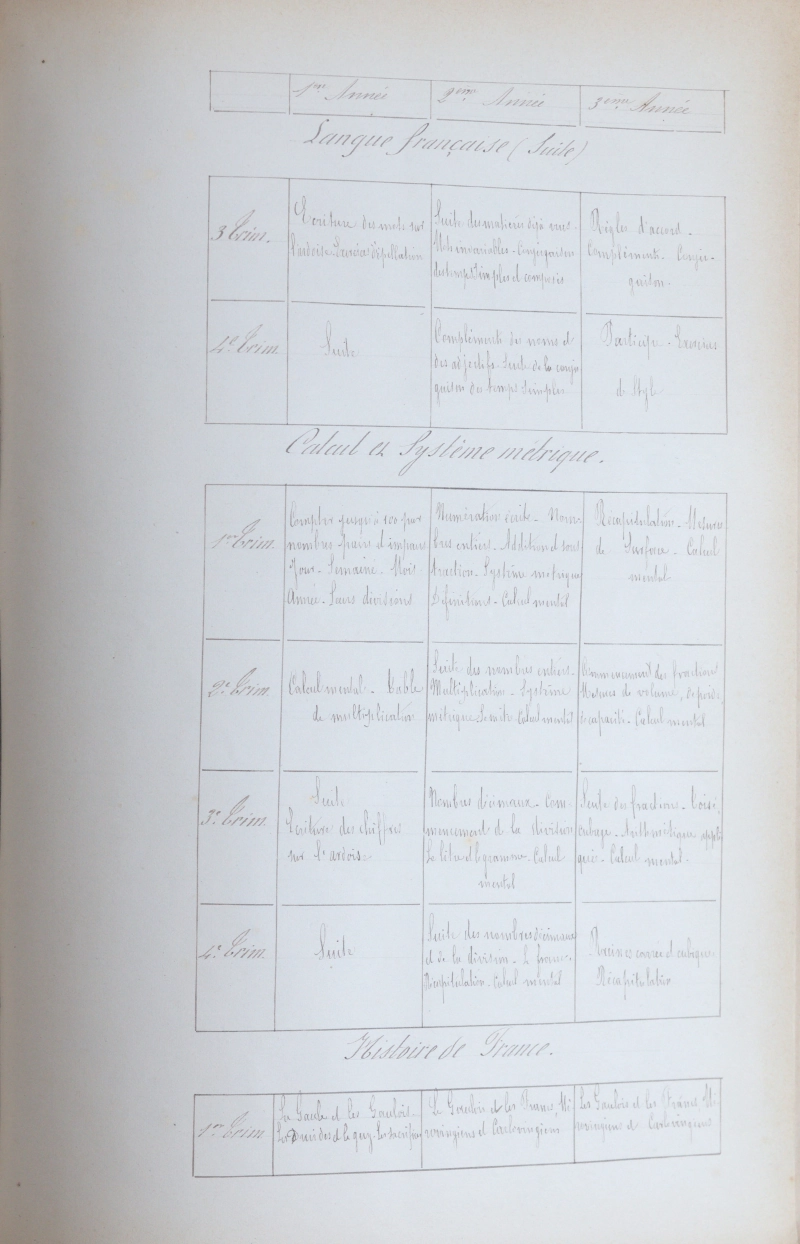 1re Année 2eme Année 3eme Année
Langue française (Suite)
3 Trim.
Ecriture des mots sur
l'ardoise - Exercices d'épellation
Suite des matières déjà vues -
Mots invariables - Conjugaison
des temps simples et composés
Règles d'accord -
Compléments - Conju-
gaison -
4e Trim.
Suite
Compléments des noms et
des adjectifs - Suite de la conju
gaison des temps simples
Participe - Exercices
de Style
Calcul et Système métrique.
1er Trim.
Compter jusqu'à 100 par
nombres pairs et impairs
Jour - Semaine - Mois
Année - Leurs divisions
Numération écrite - Nom-
bres entiers - Addition et sous
traction - Système métrique
Définitions - Calcul mental
Récapitulation - Mesures
de Surface - Calcul
mental
2e Trim.
Calcul mental - Table
de multiplication
Suite des nombres entiers -
Multiplication - Système
métrique Le mètre Calcul mental
Commencement des fractions
Mesures de volume, de poids,
de capacité - Calcul mental
3e Trim.
Suite
Ecriture des chiffres
sur l'ardoise
Nombres décimaux - Com-
mencement de la division
Le litre et le gramme - Calcul
mental
Suite des fractions - Toisé,
cubage - Arithmétique appli
quée - Calcul mental.
4e Trim.
Suite
Suite des nombres décimaux
et de la division - Le franc -
Récapitulation - Calcul mental
Racines carrée et cubique -
Récapitulation
Histoire de France.
1er Trim.
La Gaule et les Gaulois -
Les Druides et le guy - Les sacrifices
Les Gaulois et les Francs, Mé-
rovingiens et Carlovingiens
Les Gaulois et les Francs, Mé-
rovingiens et Carlovingiens